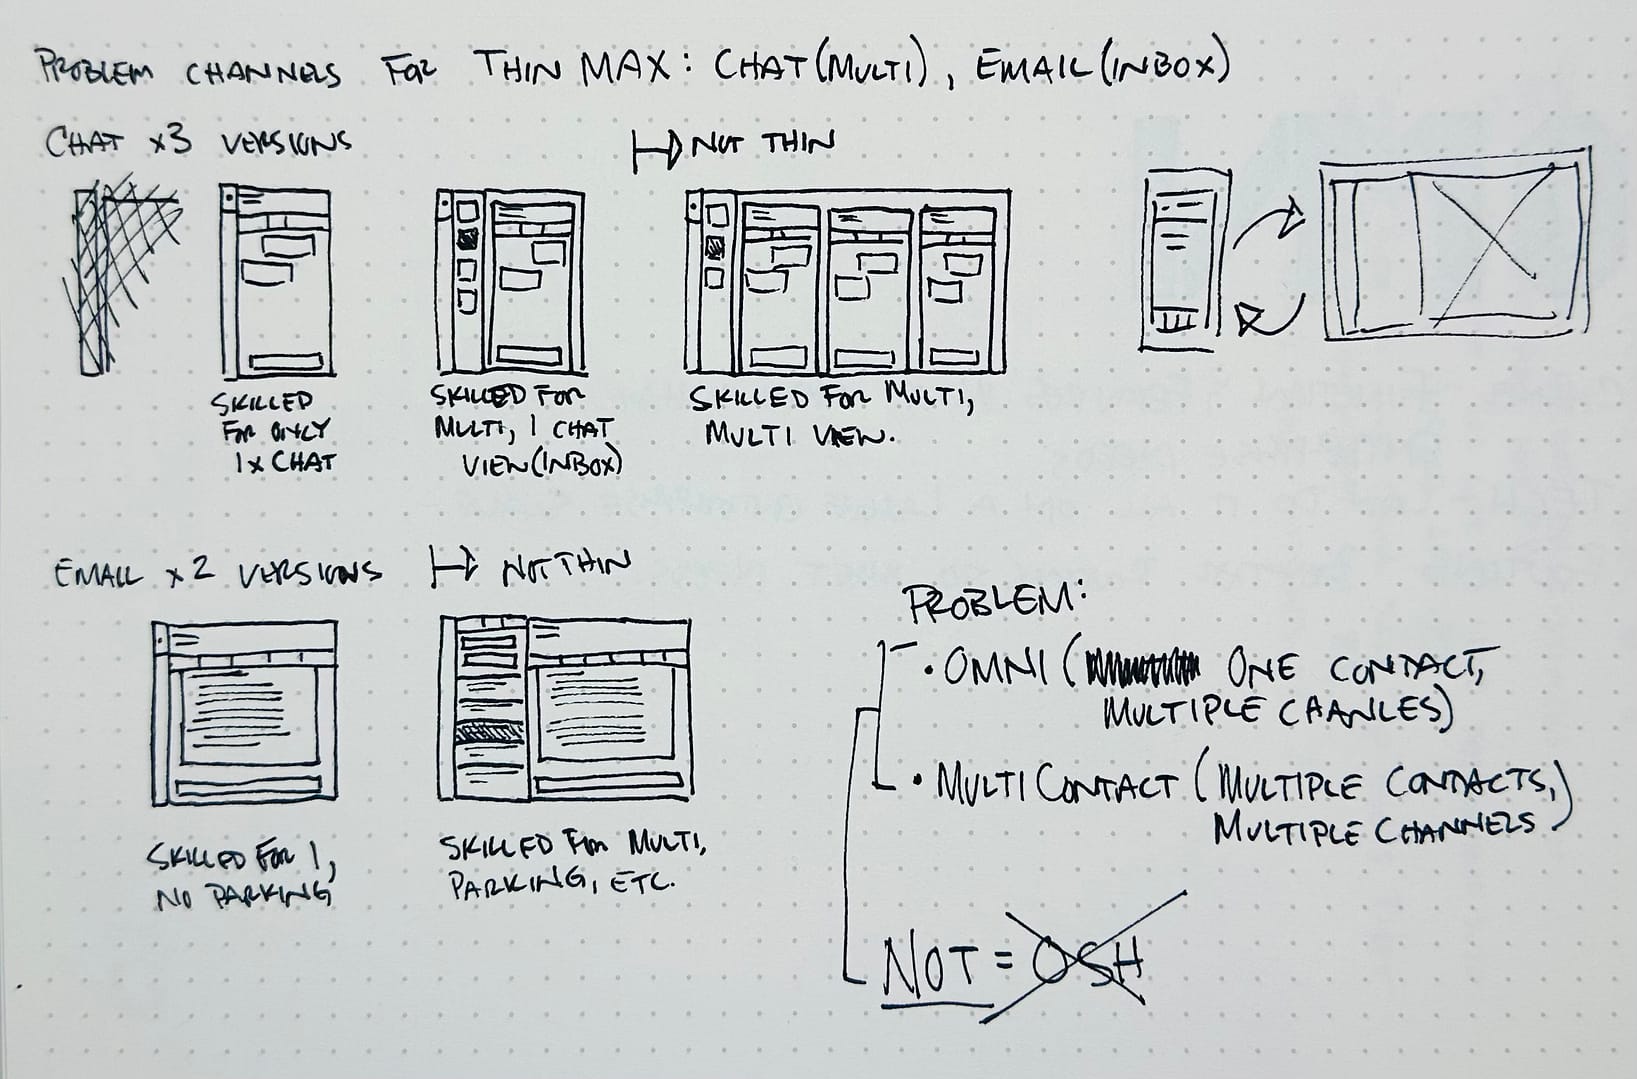 PROBLEM CHANNELS FOR THIN MAX: CHAT (MULTI), EMAIL (INBOX)
CHAT x3 VERSIONS
NOT THIN
SKILLED
FOR ONLY
1x CHAT
SKILLED FOR
MULTI, 1 CHAT
VIEW (INBOX)
SKILLED FOR MULTI,
MULTI VIEW.
EMAIL x2 VERSIONS
NOT THIN
SKILLED FOR 1,
NO PARKING
SKILLED FOR MULTI,
PARKING, ETC.
PROBLEM:
• OMNI ( ONE CONTACT,
MULTIPLE CHANLES)
• MULTI CONTACT (MULTIPLE CONTACTS,
MULTIPLE CHANNELS)
NOT = OSH